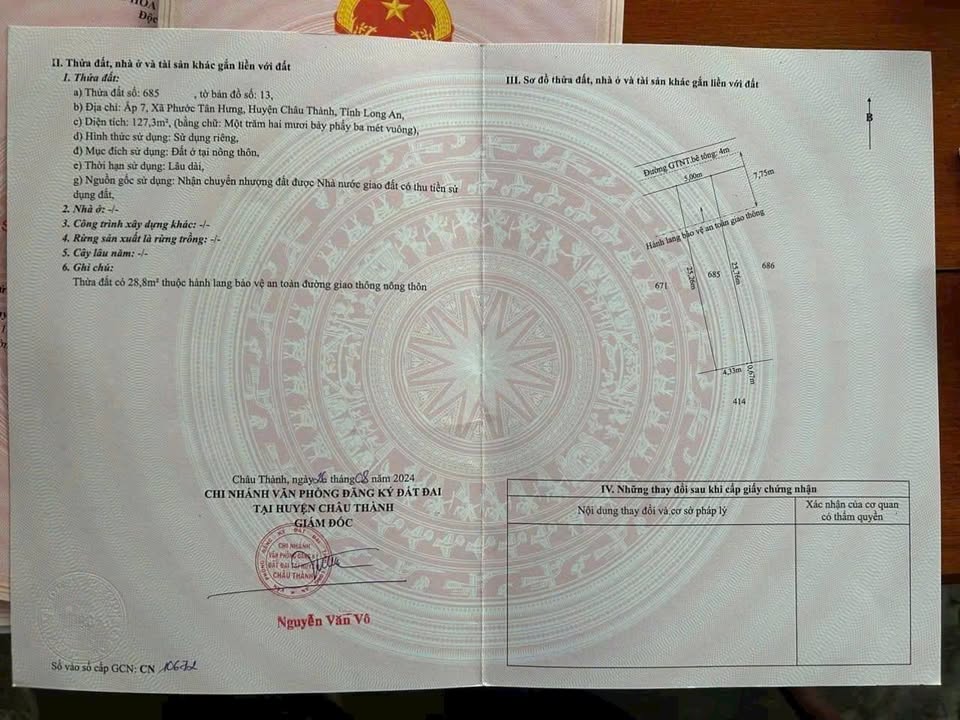 HÒA
Độc
II. Thửa đất, nhà ở và tài sản khác gắn liền với đất
1. Thửa đất:
a) Thửa đất số: 685 , tờ bản đồ số: 13,
b) Địa chỉ: Ấp 7, Xã Phước Tân Hưng, Huyện Châu Thành, Tỉnh Long An,
c) Diện tích: 127,3m², (bằng chữ: Một trăm hai mươi bảy phẩy ba mét vuông),
d) Hình thức sử dụng: Sử dụng riêng,
đ) Mục đích sử dụng: Đất ở tại nông thôn,
e) Thời hạn sử dụng: Lâu dài,
g) Nguồn gốc sử dụng: Nhận chuyển nhượng đất được Nhà nước giao đất có thu tiền sử
dụng đất,
2. Nhà ở: -/-
3. Công trình xây dựng khác: -/-
4. Rừng sản xuất là rừng trồng: -/-
5. Cây lâu năm: -/-
6. Ghi chú:
Thửa đất có 28,8m² thuộc hành lang bảo vệ an toàn đường giao thông nông thôn
Châu Thành, ngày 26 tháng 08 năm 2024
CHI NHÁNH VĂN PHÒNG ĐĂNG KÝ ĐẤT ĐAI
TẠI HUYỆN CHÂU THÀNH
GIÁM ĐỐC
CHI NHÁNH
VĂN PHÒNG ĐĂNG KÝ
ĐẤT ĐAI TẠI HUYỆN
CHÂU THÀNH
Nguyễn Văn Vô
Số vào sổ cấp GCN: CN
III. Sơ đồ thửa đất, nhà ở và tài sản khác gắn liền với đất
B
Đường GTNT.bê tông: 4m
5,00m
7,75m
Hành lang bảo vệ an toàn giao thông
25,26m
685
25,76m
686
671
4,33m
0,67m
414
IV. Những thay đổi sau khi cấp giấy chứng nhận
Nội dung thay đổi và cơ sở pháp lý
Xác nhận của cơ quan
có thẩm quyền